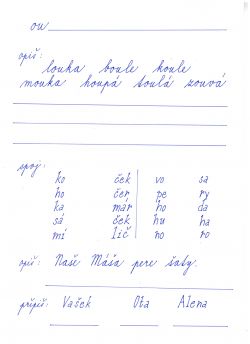 ou
opiš:
louka boule koule
mouka houpá toulá zouvá
spoj:
ko ček vo sa
ho čer pe ry
ka mář ho da
sá ček hu ha
mí líč no ro
opiš: Naše Máša pere šaty.
připiš: Vašek Ota Alena